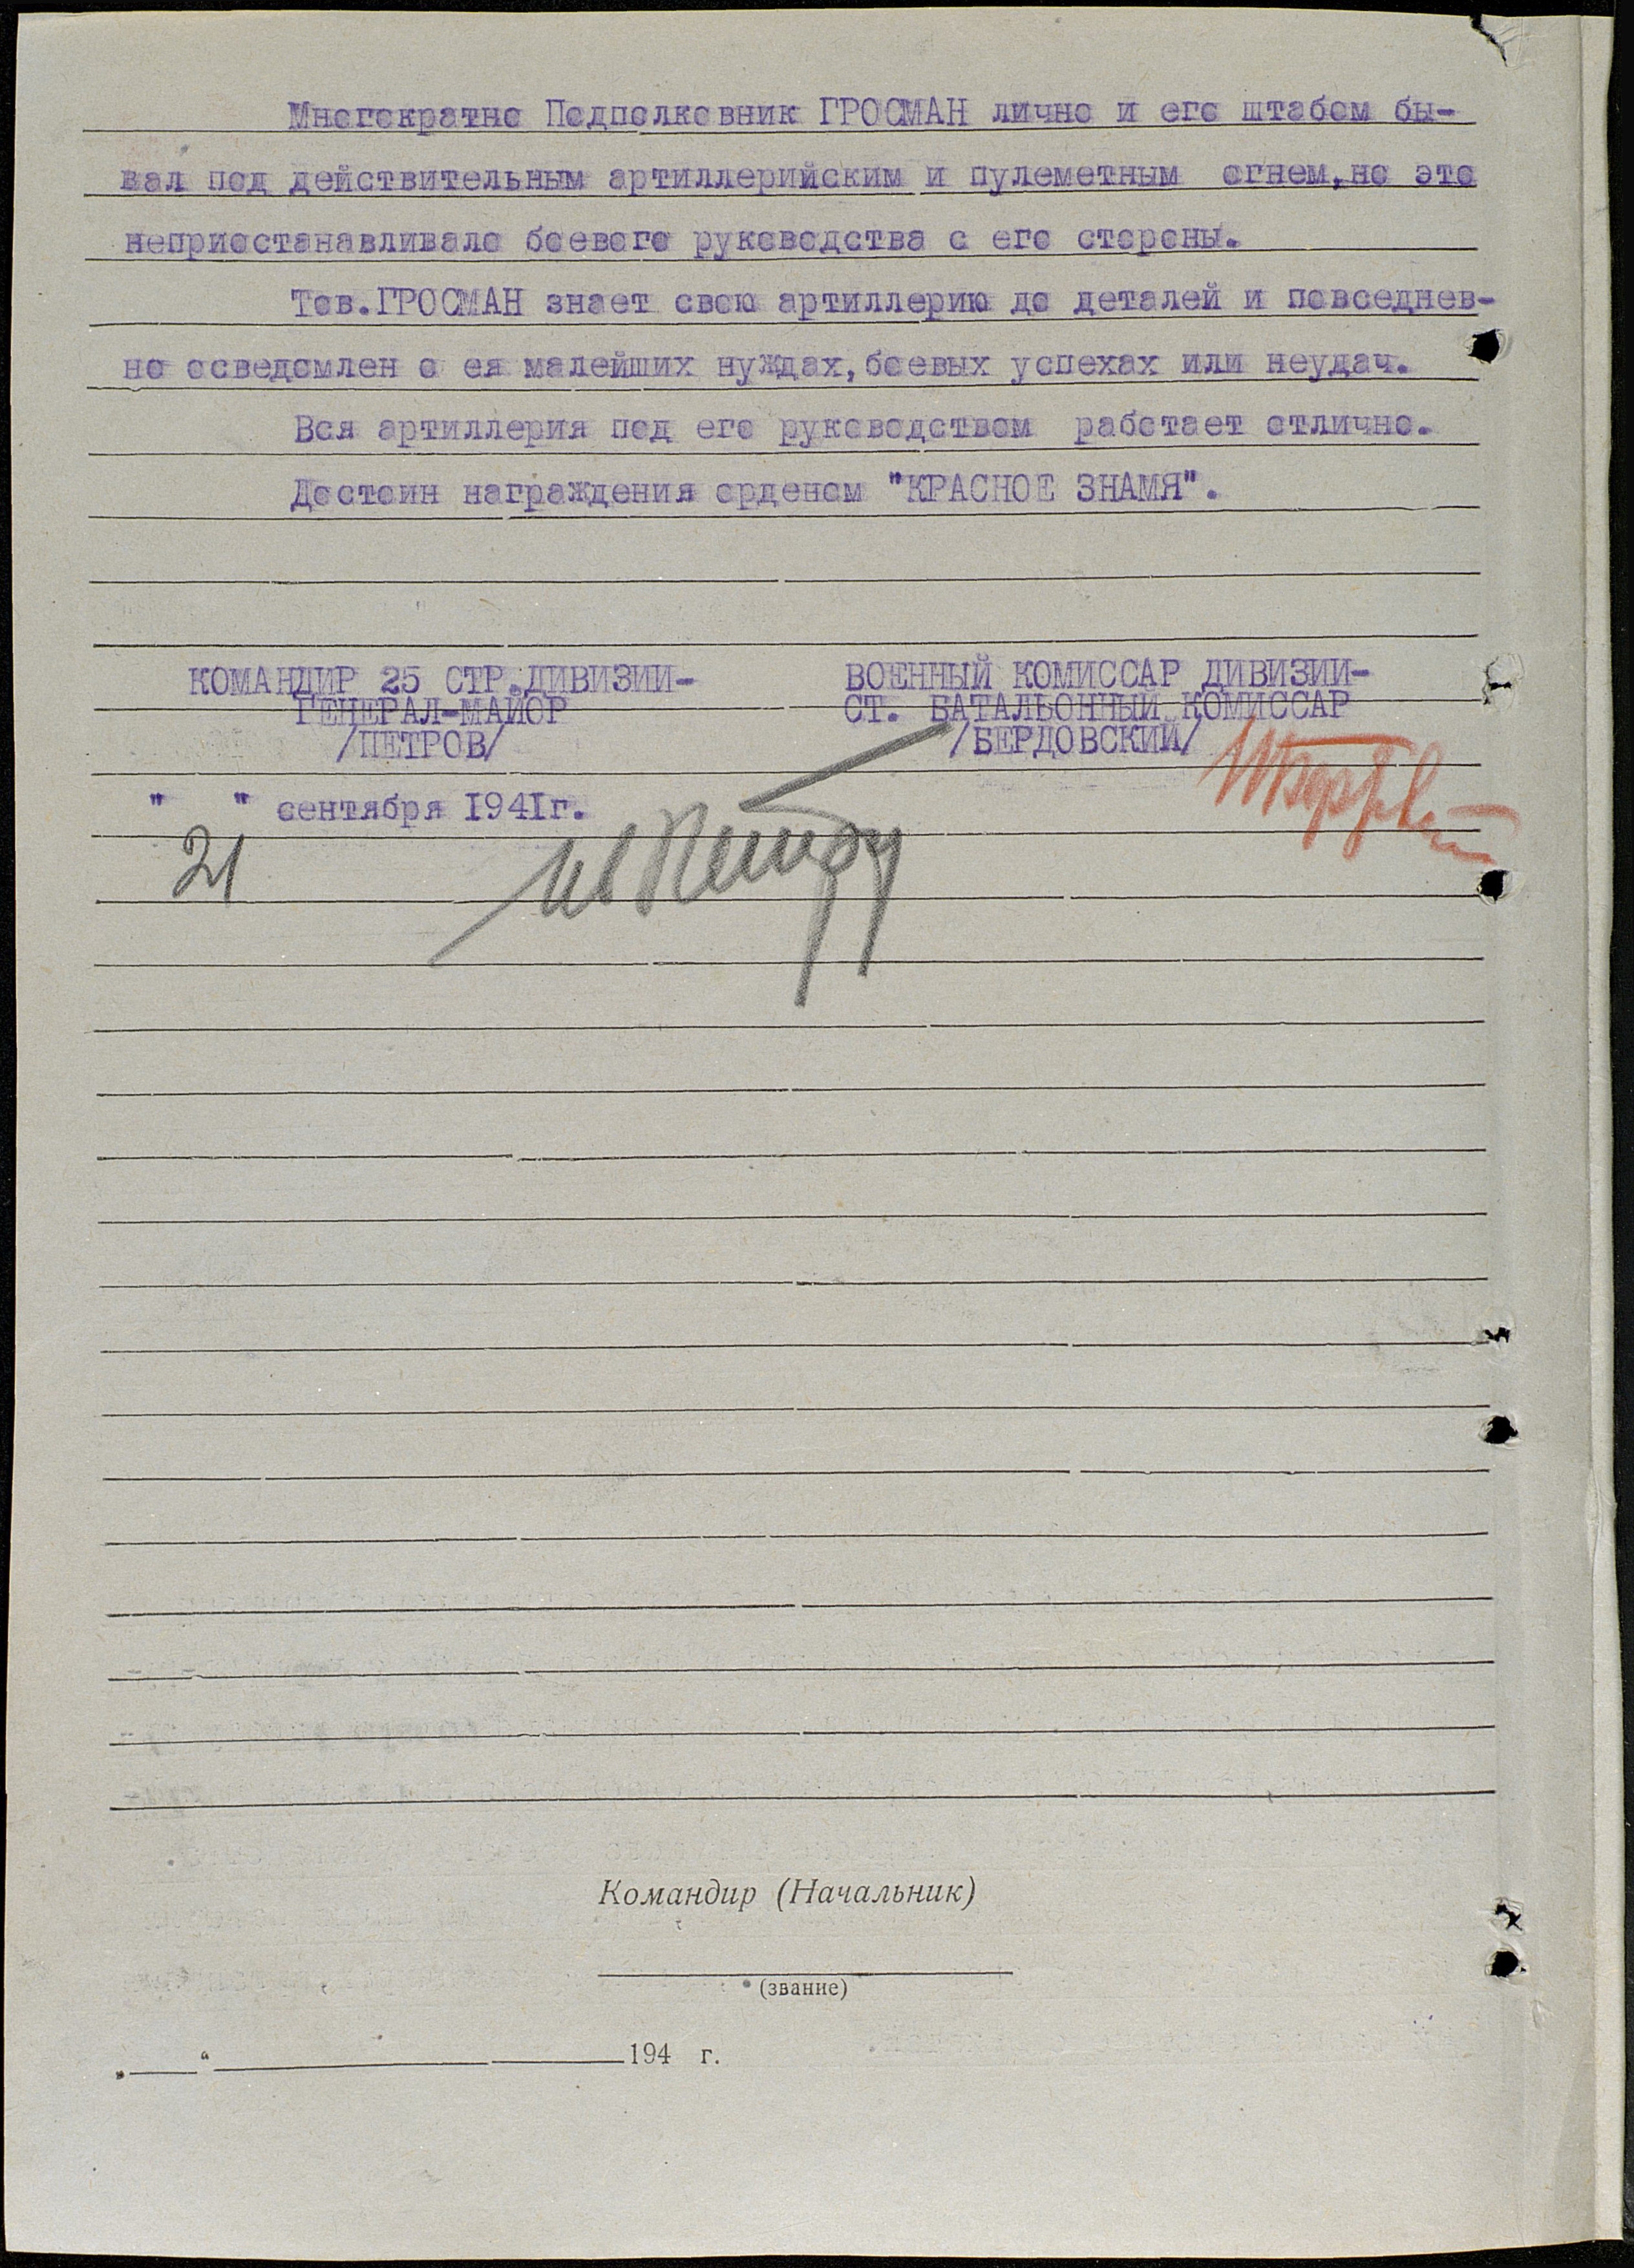 Многократно Подполковник ГРОСМАН лично и его штабом бы-
вал под действительным артиллерийским и пулеметным огнем,но это
неприостанавливало боевого руководства с его стороны.
Тов.ГРОСМАН знает свою артиллерию до деталей и повседнев-
но осведомлен о ея малейших нуждах,боевых успехах или неудач.
Вся артиллерия под его руководством работает отлично.
Достоин награждения орденом "КРАСНОЕ ЗНАМЯ".
КОМАНДИР 25 СТР.ДИВИЗИИ-
ГЕНЕРАЛ-МАЙОР
/ПЕТРОВ/
ВОЕННЫЙ КОМИССАР ДИВИЗИИ-
СТ. БАТАЛЬОННЫЙ КОМИССАР
/БЕРДОВСКИЙ/
" " сентября 1941г.
21
Командир (Начальник)
(звание)
„ “ 194 г.